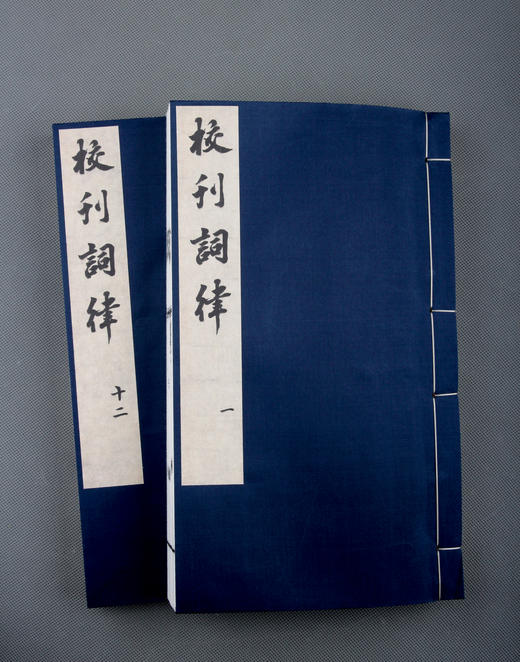 校刊詞律
十二
校刊詞律
一